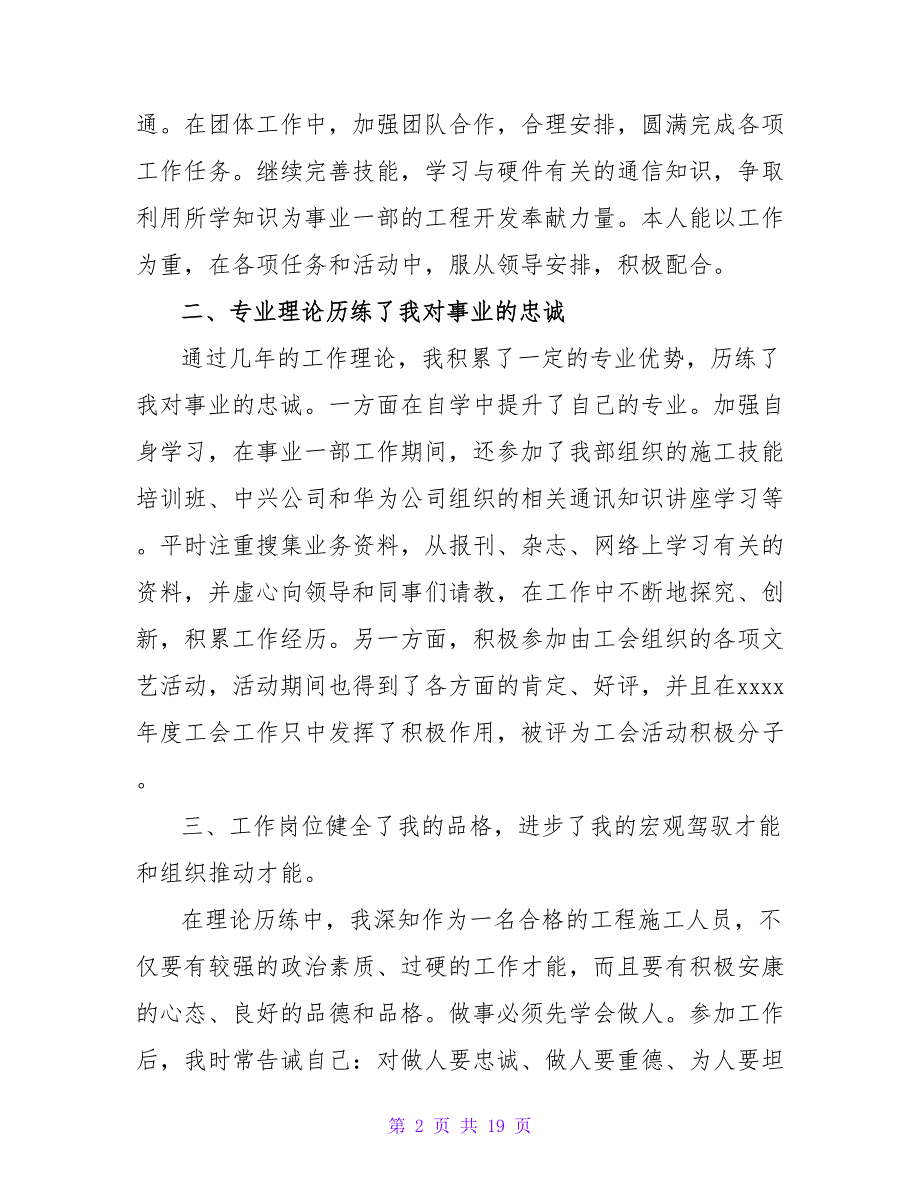 通。在团体工作中，加强团队合作，合理安排，圆满完成各项
工作任务。继续完善技能，学习与硬件有关的通信知识，争取
利用所学知识为事业一部的工程开发奉献力量。本人能以工作
为重，在各项任务和活动中，服从领导安排，积极配合。
二、专业理论历练了我对事业的忠诚
通过几年的工作理论，我积累了一定的专业优势，历练了
我对事业的忠诚。一方面在自学中提升了自己的专业。加强自
身学习，在事业一部工作期间，还参加了我部组织的施工技能
培训班、中兴公司和华为公司组织的相关通讯知识讲座学习等
。平时注重搜集业务资料，从报刊、杂志、网络上学习有关的
资料，并虚心向领导和同事们请教，在工作中不断地探究、创
新，积累工作经历。另一方面，积极参加由工会组织的各项文
艺活动，活动期间也得到了各方面的肯定、好评，并且在xxxx
年度工会工作只中发挥了积极作用，被评为工会活动积极分子
。
三、工作岗位健全了我的品格，进步了我的宏观驾驭才能
和组织推动才能。
在理论历练中，我深知作为一名合格的工程施工人员，不
仅要有较强的政治素质、过硬的工作才能，而且要有积极安康
的心态、良好的品德和品格。做事必须先学会做人。参加工作
后，我时常告诫自己：对做人要忠诚、做人要重德、为人要坦
第 2 页 共 19 页